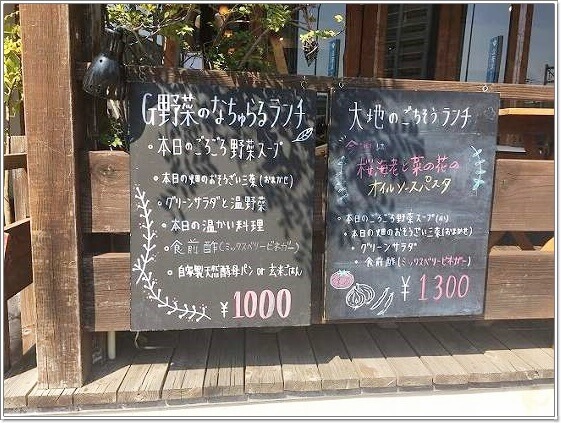 G野菜のなちゅらるランチ
・本日のごろごろ野菜スープ
・本日の畑のおそうざい三菜(おまかせ)
・グリーンサラダと温野菜
・本日の温かい料理
・食前酢(ミックスベリービネガー)
・自家製天然酵母パン or 玄米ごはん
¥1000
大地のごちそうランチ
桜海老と菜の花の
オイルソースパスタ
・本日のごろごろ野菜スープ
・本日の畑のおそうざい三菜(おまかせ)
・グリーンサラダ
・食前酢(ミックスベリービネガー)
¥1300